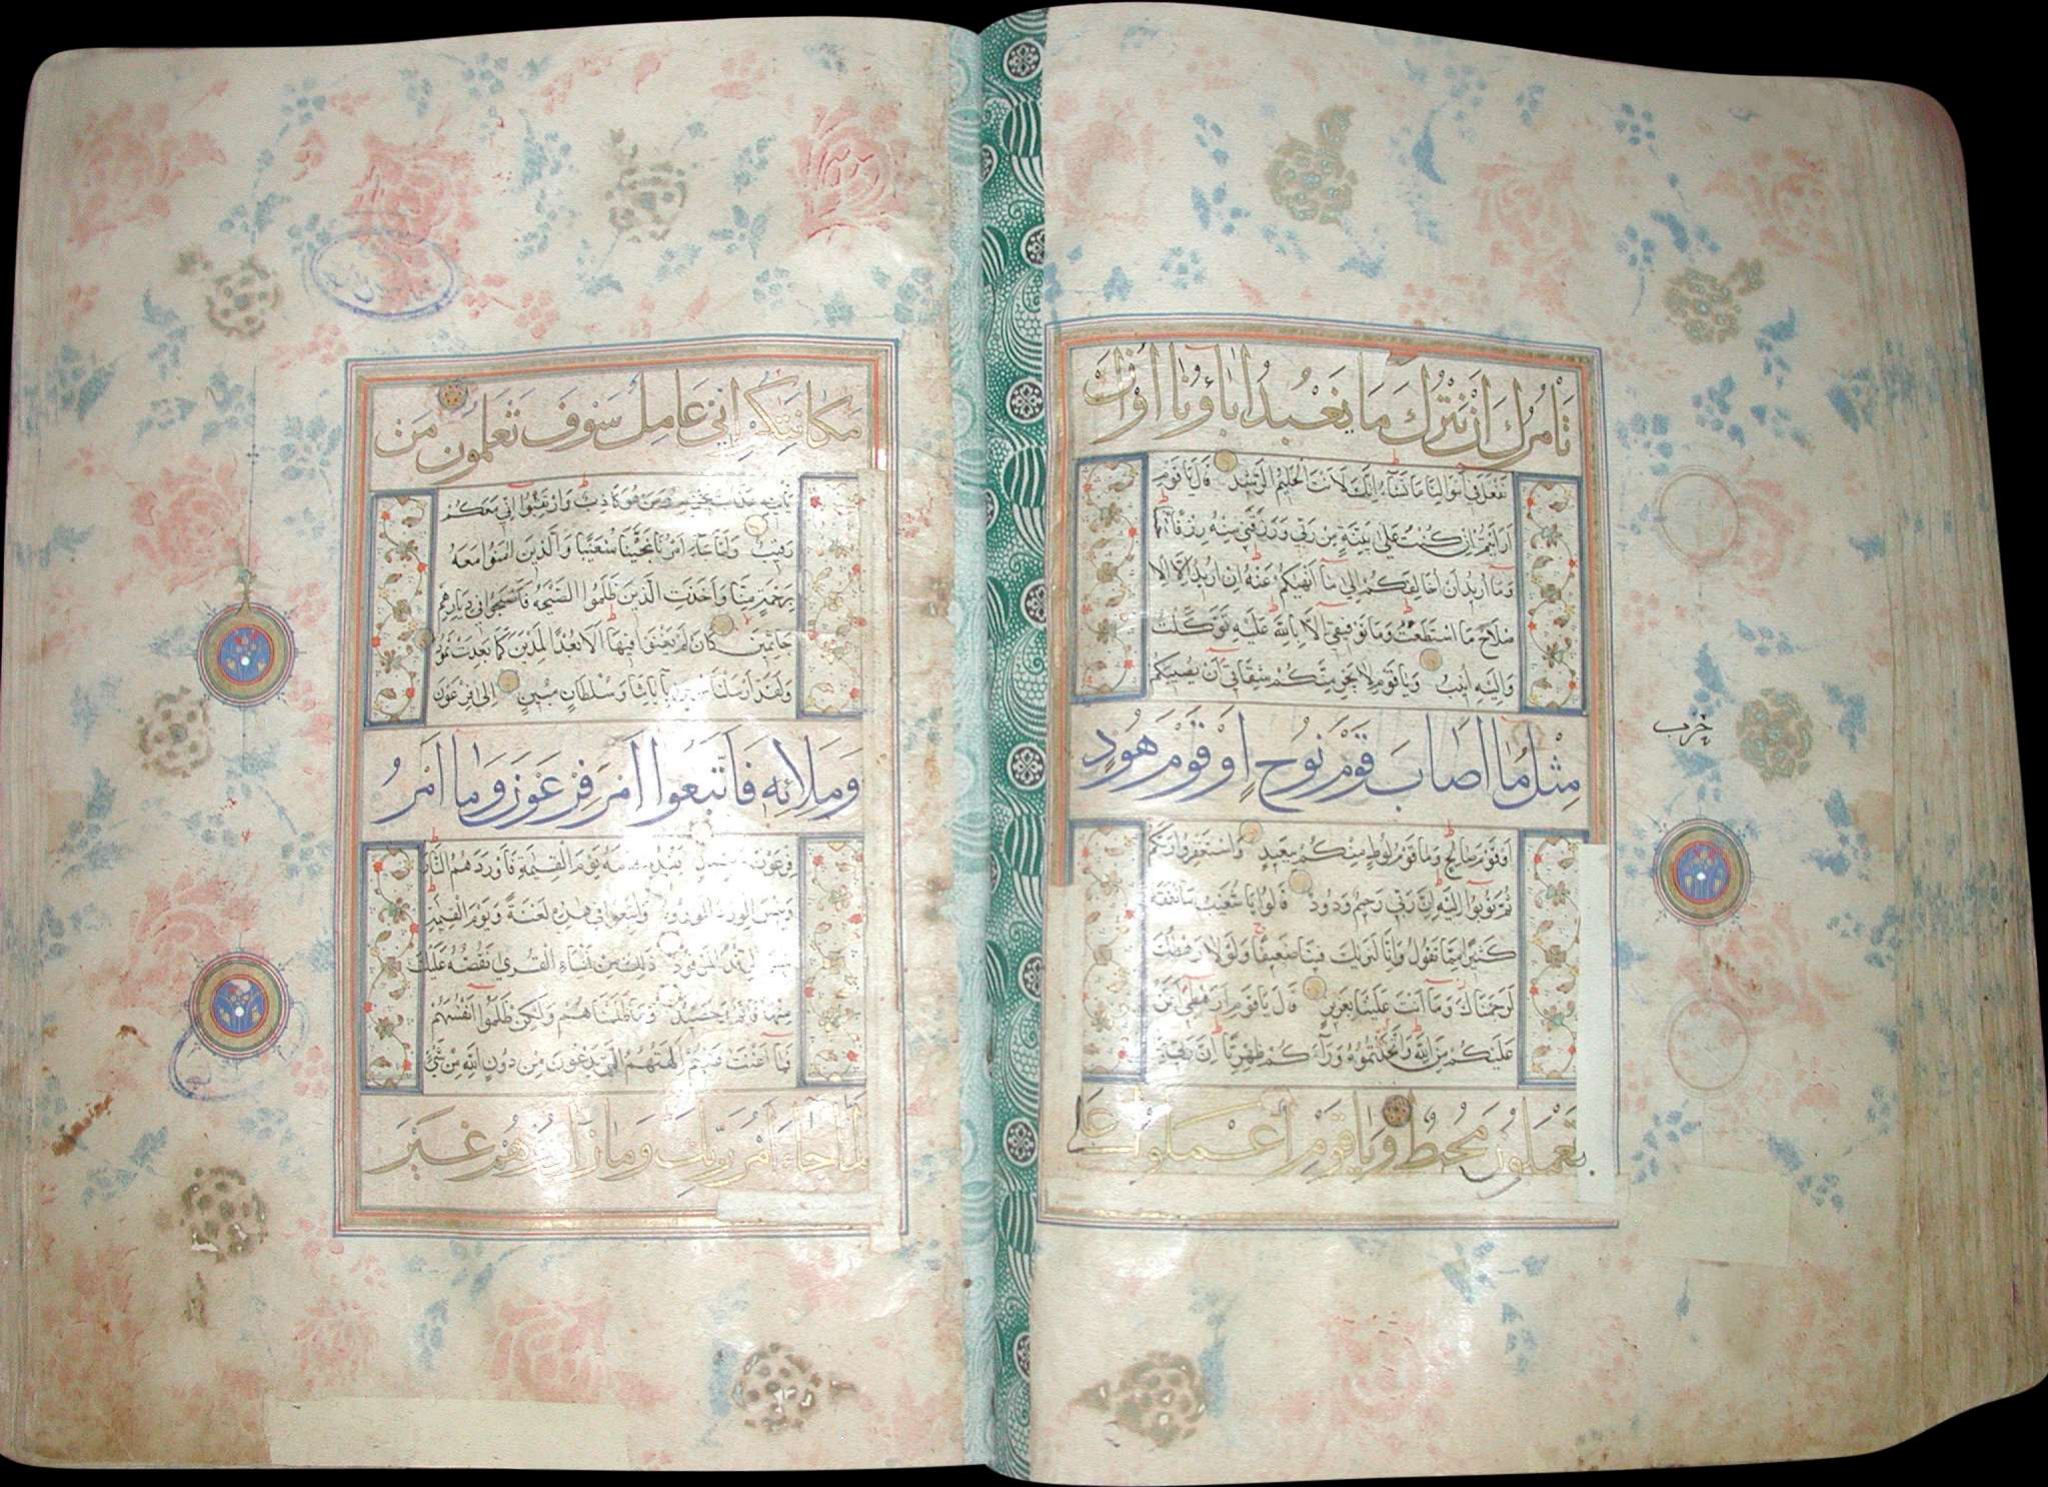 تَأْمُرُكَ اَنْ نَتْرُكَ مَا يَعْبُدُ اٰبَاؤُنَا اَوْ اَنْ
نَفْعَلَ فِي اَمْوَالِنَا مَا نَشَاءُ اِنَّكَ لَاَنْتَ الْحَلِيمُ الرَّشِيدُ قَالَ يَا قَوْمِ
اَرَاَيْتُمْ اِنْ كُنْتُ عَلٰى بَيِّنَةٍ مِنْ رَبِّي وَرَزَقَنِي مِنْهُ رِزْقًا
وَمَا اُرِيدُ اَنْ اُخَالِفَكُمْ اِلٰى مَا اَنْهٰيكُمْ عَنْهُ اِنْ اُرِيدُ اِلَّا الْاِ
صْلَاحَ مَا اسْتَطَعْتُ وَمَا تَوْفِيقِي اِلَّا بِاللّٰهِ عَلَيْهِ تَوَكَّلْتُ
وَاِلَيْهِ اُنِيبُ وَيَا قَوْمِ لَا يَجْرِمَنَّكُمْ شِقَاقِي اَنْ يُصِيبَكُمْ
مِثْلُ مَا اَصَابَ قَوْمَ نُوحٍ اَوْ قَوْمَ هُودٍ
حزب
اَوْ قَوْمَ صَالِحٍ وَمَا قَوْمُ لُوطٍ مِنْكُمْ بِبَعِيدٍ وَاسْتَغْفِرُوا رَبَّكُمْ
ثُمَّ تُوبُوا اِلَيْهِ اِنَّ رَبِّي رَحِيمٌ وَدُودٌ قَالُوا يَا شُعَيْبُ مَا نَفْقَهُ
كَثِيرًا مِمَّا تَقُولُ وَاِنَّا لَنَرٰيكَ فِينَا ضَعِيفًا وَلَوْلَا رَهْطُكَ
لَرَجَمْنَاكَ وَمَا اَنْتَ عَلَيْنَا بِعَزِيزٍ قَالَ يَا قَوْمِ اَرَهْطِي اَعَزُّ
عَلَيْكُمْ مِنَ اللّٰهِ وَاتَّخَذْتُمُوهُ وَرَاءَكُمْ ظِهْرِيًّا اِنَّ رَبِّي بِمَا
تَعْمَلُونَ مُحِيطٌ وَيَا قَوْمِ اعْمَلُوا عَلٰى
مَكَانَتِكُمْ اِنِّي عَامِلٌ سَوْفَ تَعْلَمُونَ مَنْ
يَأْتِيهِ عَذَابٌ يُخْزِيهِ وَمَنْ هُوَ كَاذِبٌ وَارْتَقِبُوا اِنِّي مَعَكُمْ
رَقِيبٌ وَلَمَّا جَاءَ اَمْرُنَا نَجَّيْنَا شُعَيْبًا وَالَّذِينَ اٰمَنُوا مَعَهُ
بِرَحْمَةٍ مِنَّا وَاَخَذَتِ الَّذِينَ ظَلَمُوا الصَّيْحَةُ فَاَصْبَحُوا فِي دِيَارِهِمْ
جَاثِمِينَ كَاَنْ لَمْ يَغْنَوْا فِيهَا اَلَا بُعْدًا لِمَدْيَنَ كَمَا بَعِدَتْ ثَمُودُ
وَلَقَدْ اَرْسَلْنَا مُوسٰى بِاٰيَاتِنَا وَسُلْطَانٍ مُبِينٍ اِلٰى فِرْعَوْنَ
وَمَلَائِهِ فَاتَّبَعُوا اَمْرَ فِرْعَوْنَ وَمَا اَمْرُ
فِرْعَوْنَ بِرَشِيدٍ يَقْدُمُ قَوْمَهُ يَوْمَ الْقِيٰمَةِ فَاَوْرَدَهُمُ النَّارَ
وَبِئْسَ الْوِرْدُ الْمَوْرُودُ وَاُتْبِعُوا فِي هٰذِهِ لَعْنَةً وَيَوْمَ الْقِيٰمَةِ
بِئْسَ الرِّفْدُ الْمَرْفُودُ ذٰلِكَ مِنْ اَنْبَاءِ الْقُرٰى نَقُصُّهُ عَلَيْكَ
مِنْهَا قَائِمٌ وَحَصِيدٌ وَمَا ظَلَمْنَاهُمْ وَلٰكِنْ ظَلَمُوا اَنْفُسَهُمْ
فَمَا اَغْنَتْ عَنْهُمْ اٰلِهَتُهُمُ الَّتِي يَدْعُونَ مِنْ دُونِ اللّٰهِ مِنْ شَيْءٍ
لَمَّا جَاءَ اَمْرُ رَبِّكَ وَمَا زَادُوهُمْ غَيْرَ